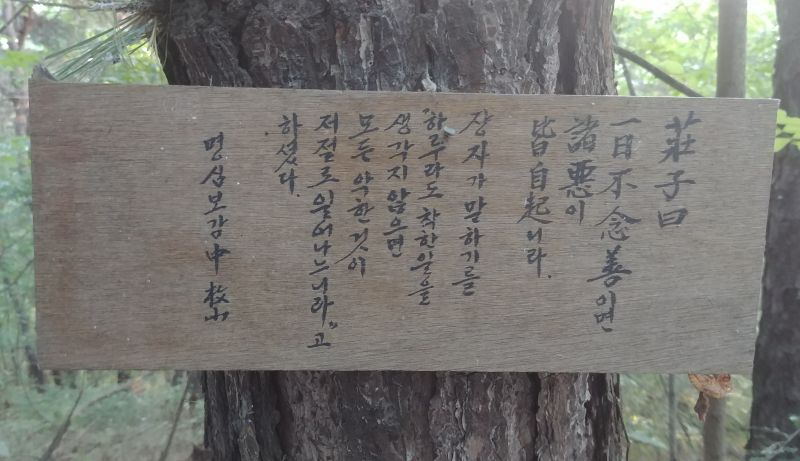 莊子曰
一日不念善이면
諸惡이
皆自起니라.
장자가 말하기를
"하루라도 착한일을
생각지 않으면
모든 악한것이
저절로 일어나느니라"고
하셨다.
명심보감 中